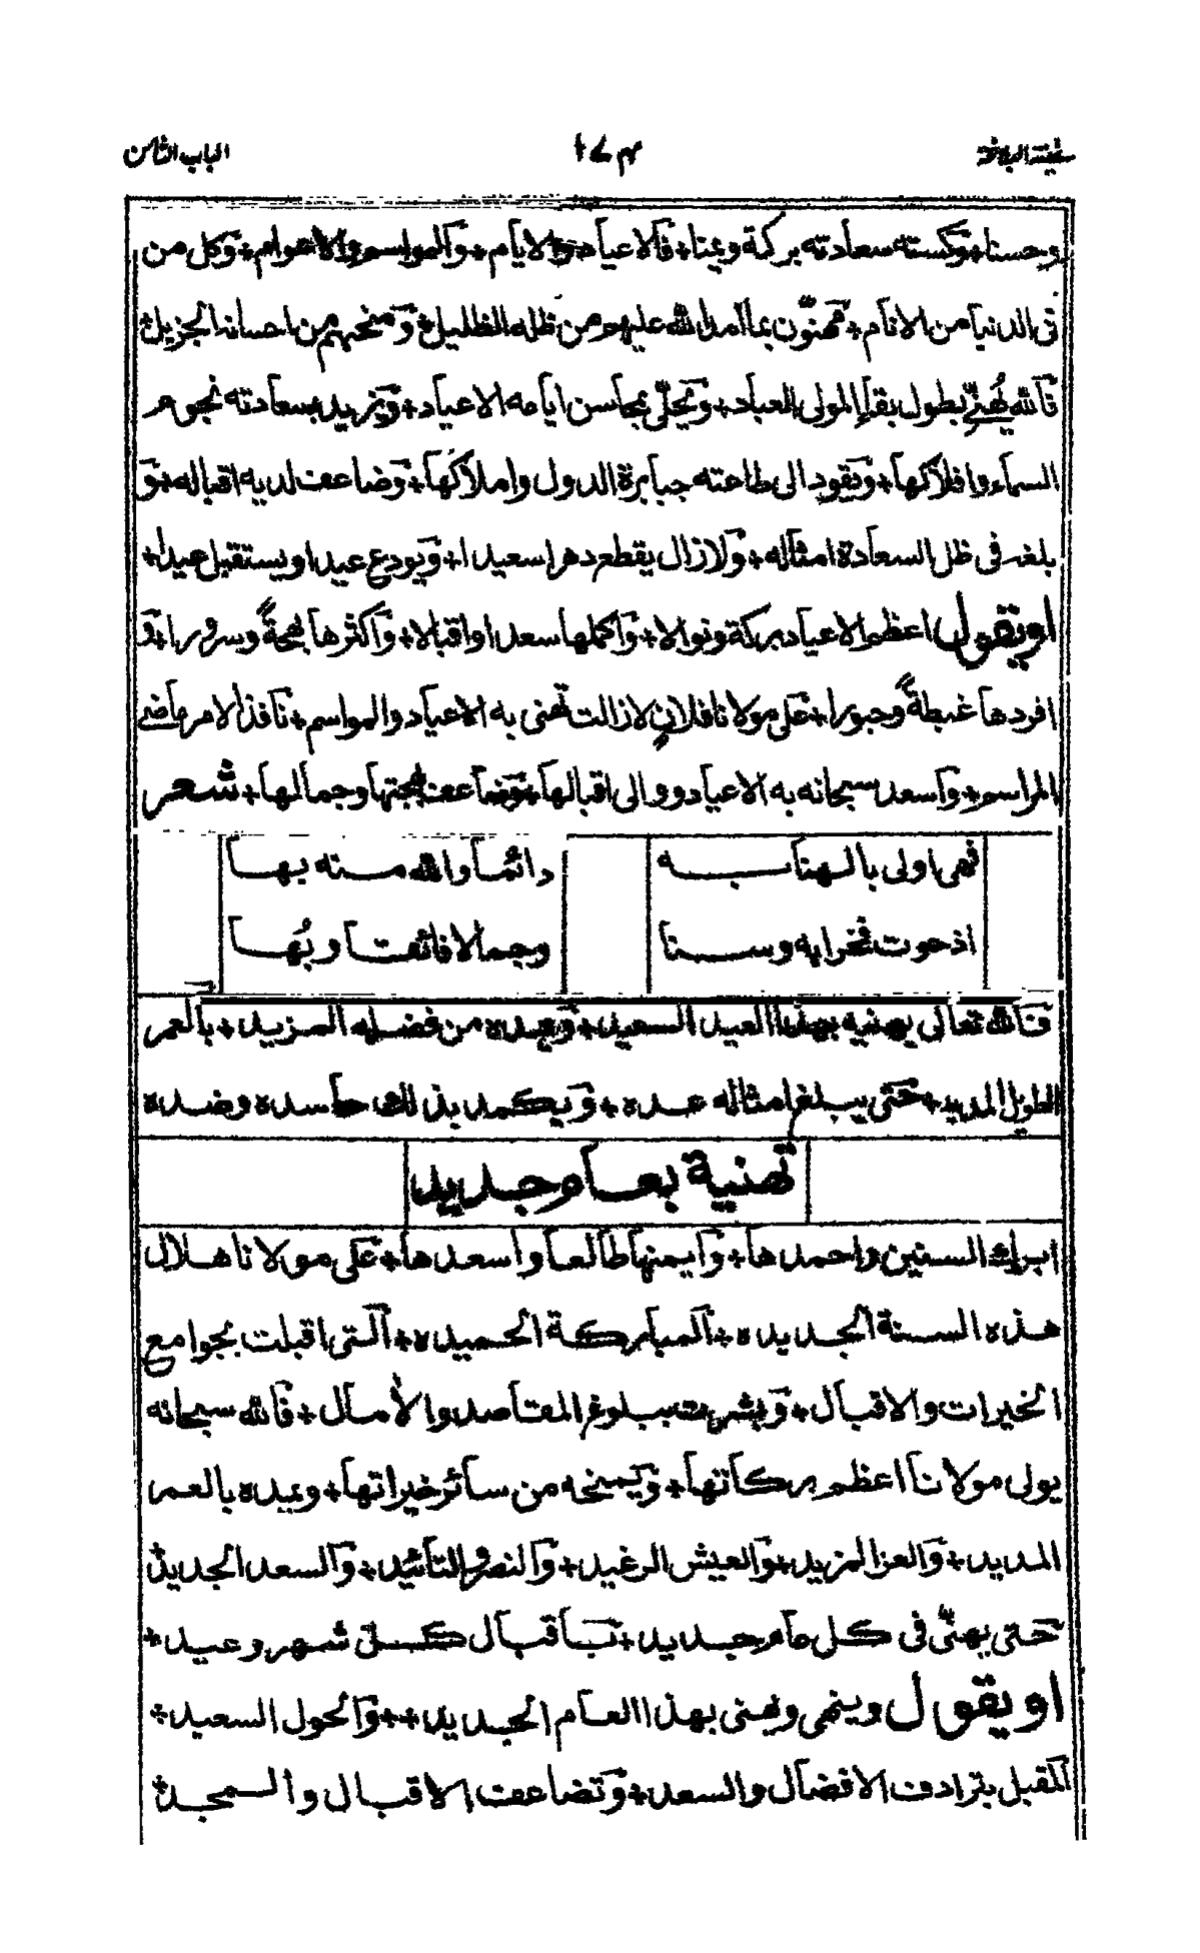 سفينة البلاغة ١٧٤ الباب الثامن
وحسنا+وكسته سعادته بركة ويمنا+فالاعياد والايام+والمواسم والاعوام+وكل من
فى الدنيا من الانام+مهنّون بما امد الله عليهم من ظله الظليل+ومنحهم من احسانه الجزيل+
فالله يُهنّي بطول بقا المولى العباد+ويحلّى بمحاسن ايامه الاعياد+ويزيد بسعادته نجوم
السماء وافلاكها+ويقود الى طاعته جبابرة الدول واملاكها+وضاعف لديه اقباله+و
بلغه فى ظل السعادة امثاله+ولازال يقطع دهرا سعيدا+ويودع عيدا ويستقبل عيدا+
او يقول اعظم الاعياد بركة ونوالا+واكملها سعدا واقبالا+واكثرها بهجةً وسرورا+و
افردها غبطةً وحبورا+على مولانا فلانٍ لازالت تهنى به الاعياد والمواسم+نافذ الامر ماضى
المراسم+واسعد سبحانه به الاعياد ووالى اقبالها+وضاعف بهجتها وجمالها+شعر
فهى اولى بالهنا به دائما والله منه بها
اذ حوت فخرا به وسنا وجمالا فائقا وبُها
فالله تعالى يهنيه بهذا العيد السعيد+ويمده من فضله المزيد+بالعمر
الطويل المديد+حتى يبلغ امثاله عده+ويكمد بذلك حاسده وضده
تهنية بعام جديد
ابرك السنين واحمدها+وايمنها طالعا واسعدها+على مولانا هلال
هذه السنة الجديده+المباركة الحميده+التى اقبلت بجوامع
الخيرات والاقبال+وبشرت ببلوغ المقاصد والأمال+فالله سبحانه
يولى مولانا اعظم بركاتها+ويمنحه من سائر خيراتها+ويمده بالعمر
المديد+والعز المزيد+والعيش الرغيد+والنصر والتائيد+والسعد الجديد+
حتى يهنّى فى كل عام جديد+باقبال كل شهر وعيد+
او يقول وينهى ويهنى بهذا العام الجديد++والحول السعيد+
المقبل بترادف الافضال والسعد+وتضاعف الاقبال والمجد+